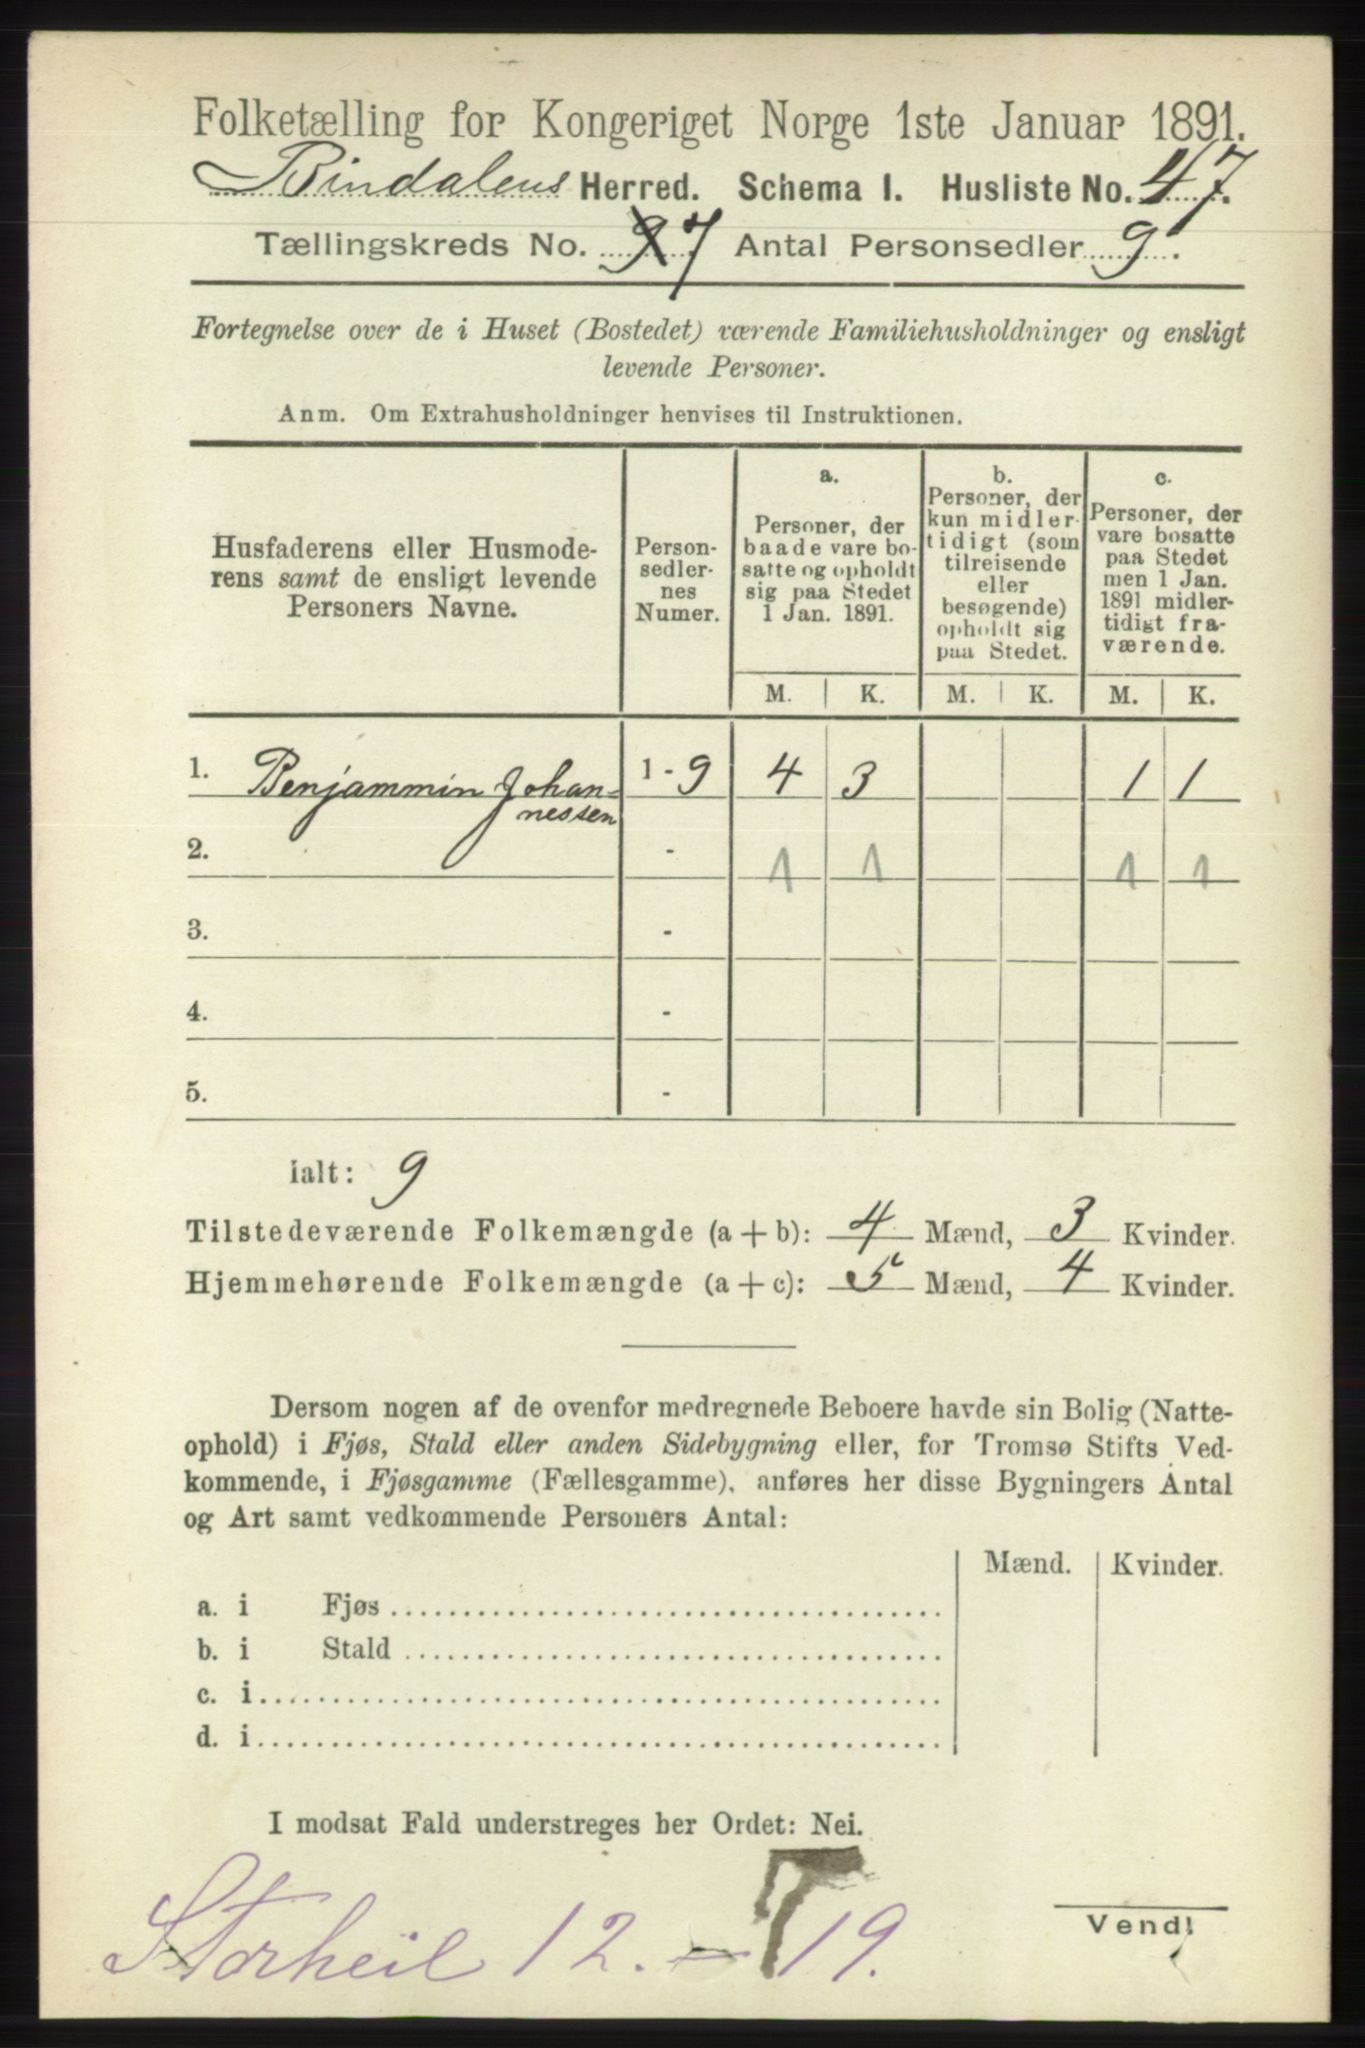 Folketælling for Kongeriget Norge 1ste Januar 1891.
Bindalens Herred. Schema I. Husliste No. 47.
Tællingskreds No. 9 7 Antal Personsedler 9.
Fortegnelse over de i Huset (Bostedet) værende Familiehusholdninger og ensligt
levende Personer.
Anm. Om Extrahusholdninger henvises til Instruktionen.
Husfaderens eller Husmode-
rens samt de ensligt levende
Personers Navne.
Person-
sedler-
nes
Numer.
a.
Personer, der
baade vare bo-
satte og opholdt
sig paa Stedet
1 Jan. 1891.
b.
Personer, der
kun midler-
tidigt (som
tilreisende
eller
besøgende)
opholdt sig
paa Stedet.
c.
Personer, der
vare bosatte
paa Stedet
men 1 Jan.
1891 midler-
tidigt fra-
værende.
M. K. M. K. M. K.
1. Benjammin Johan=
nessen 1 - 9 4 3 1 1
2. - 1 1 1 1
3. -
4. -
5. -
ialt: 9
Tilstedeværende Folkemængde (a + b): 4 Mænd, 3 Kvinder.
Hjemmehørende Folkemængde (a + c): 5 Mænd, 4 Kvinder.
Dersom nogen af de ovenfor medregnede Beboere havde sin Bolig (Natte-
ophold) i Fjøs, Stald eller anden Sidebygning eller, for Tromsø Stifts Ved-
kommende, i Fjøsgamme (Fællesgamme), anføres her disse Bygningers Antal
og Art samt vedkommende Personers Antal:
Mænd. Kvinder.
a. i Fjøs
b. i Stald
c. i
d. i
I modsat Fald understreges her Ordet: Nei.
Storheil 12. - T 19.
Vend!